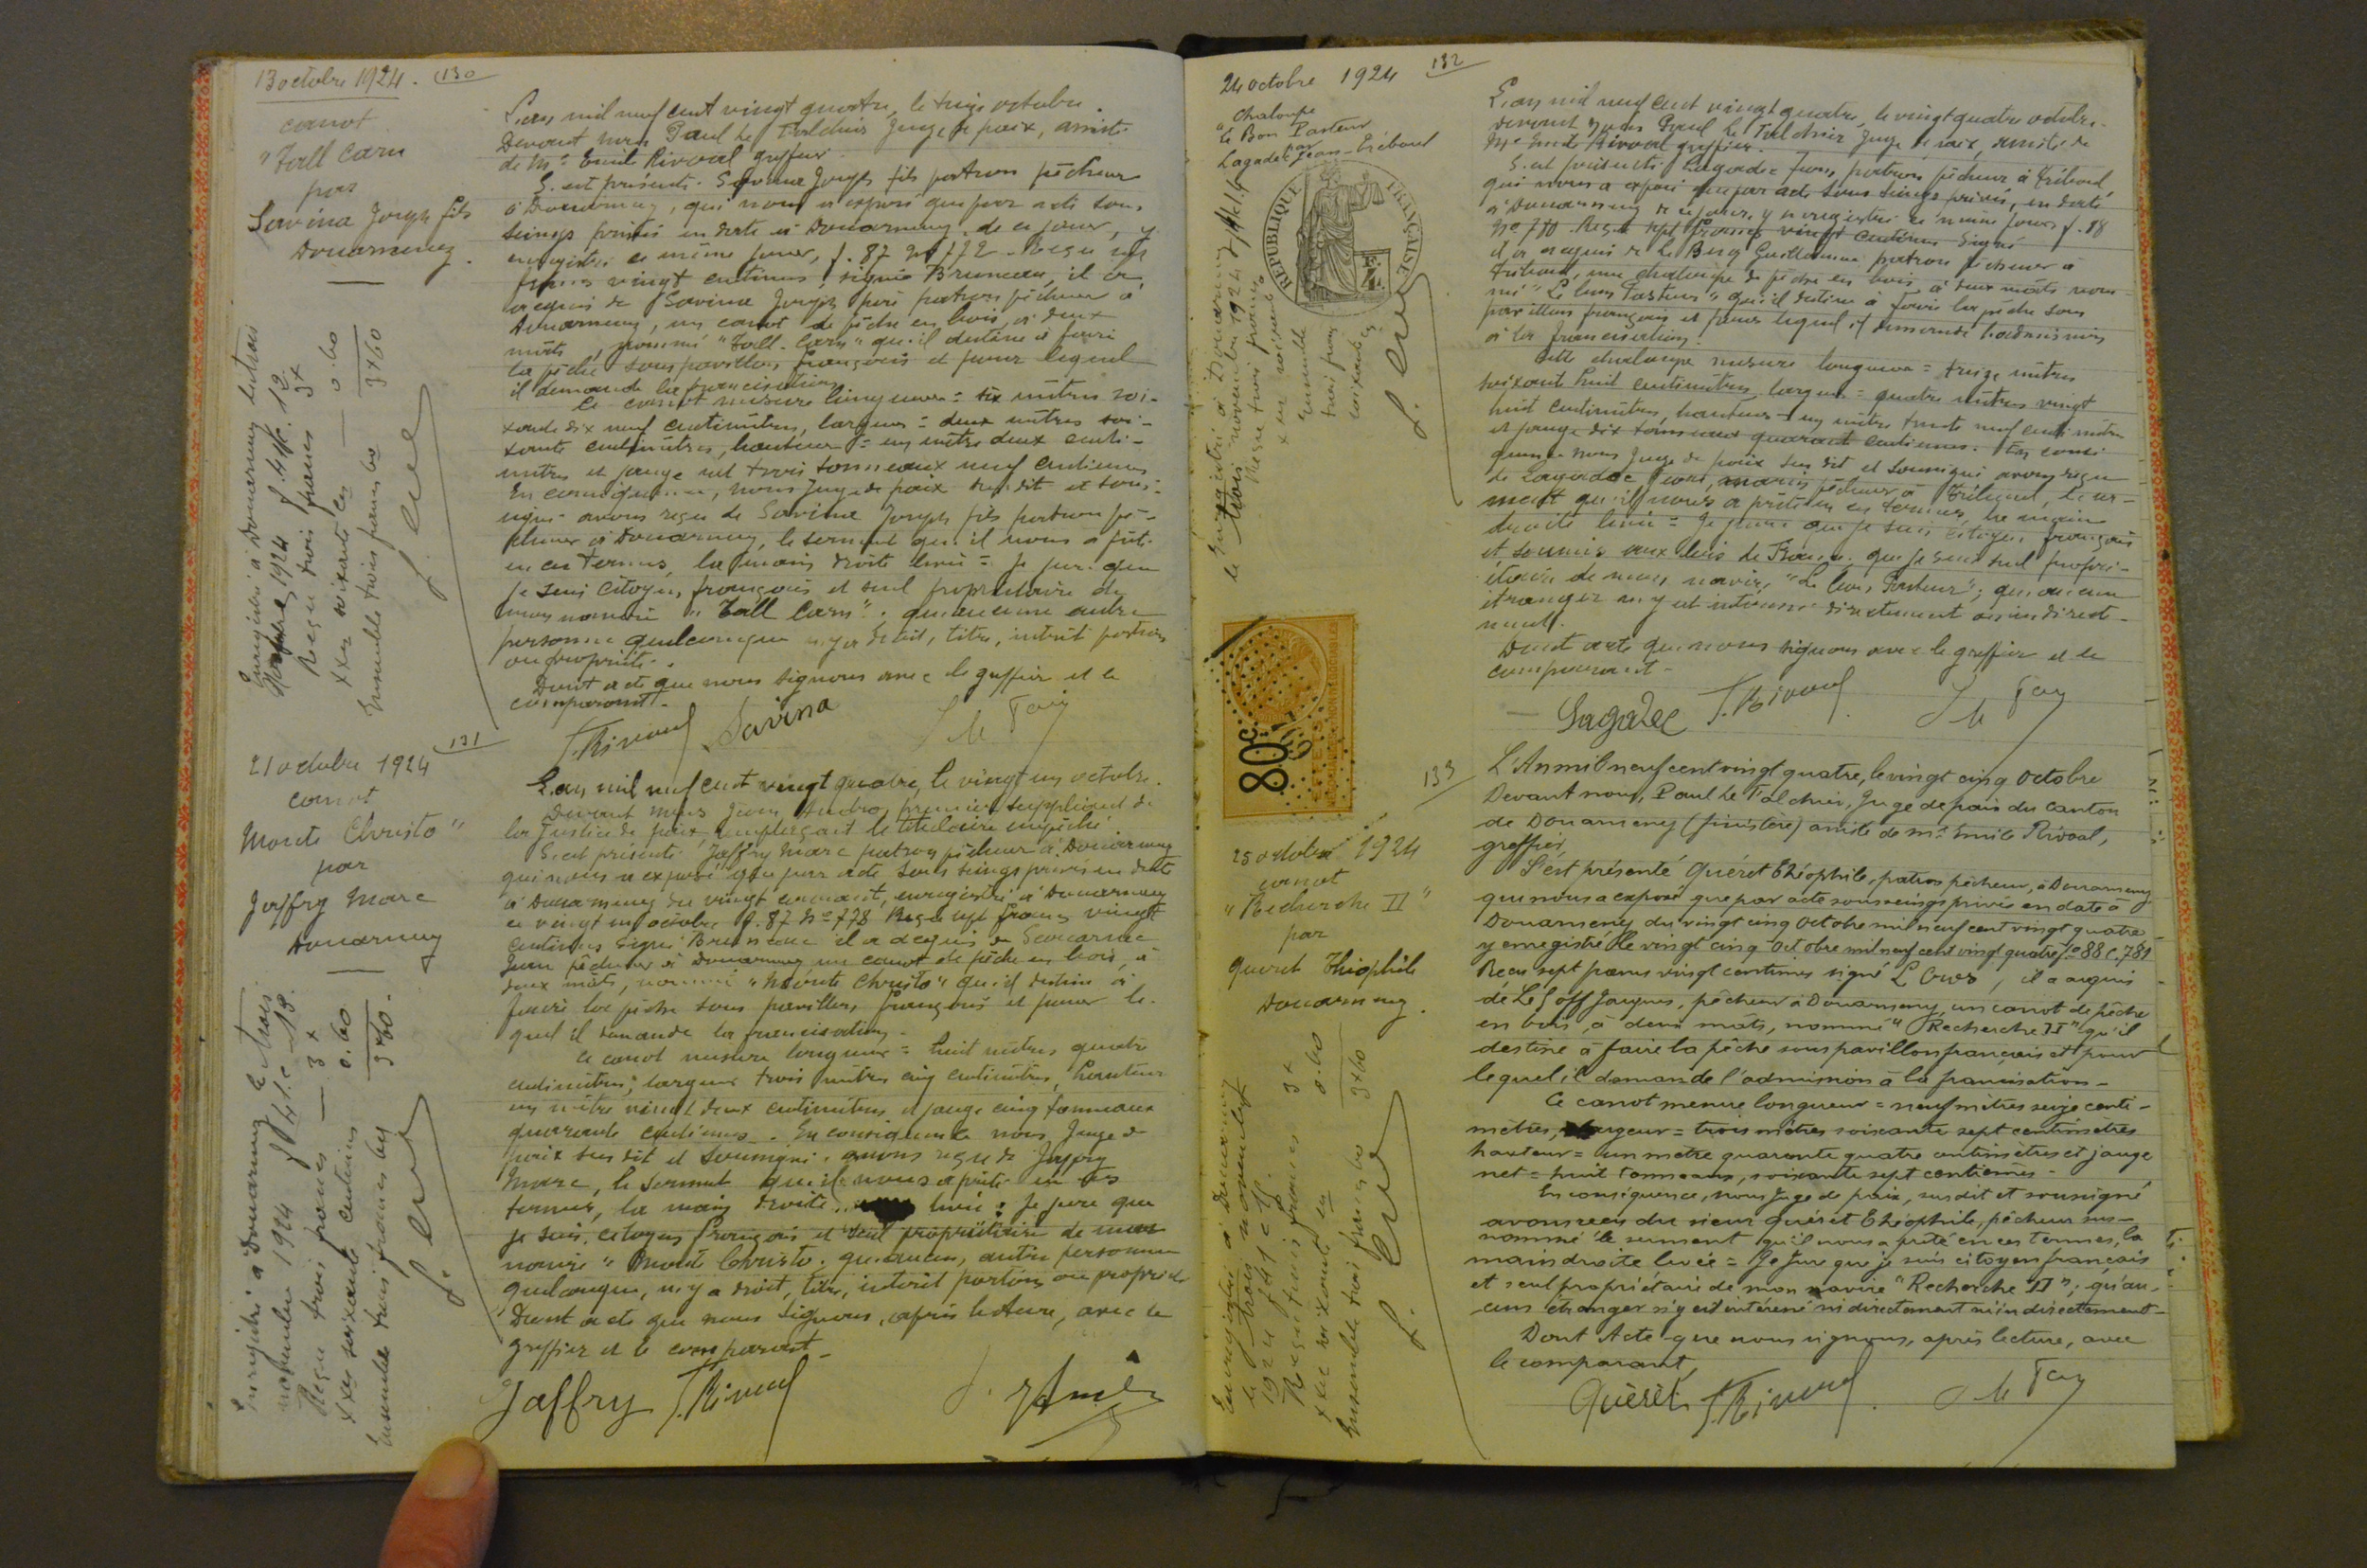 13 octobre 1924. 130
canot
"Tall Carn
par
Savina Joseph fils
Douarnenez.
L'an mil neuf cent vingt quatre, le treize octobre.
Devant nous Paul Le Talchier Juge de paix, assisté
de Me Emile Rivoal greffier.
S'est présenté Savina Joseph fils patron pêcheur
à Douarnenez, qui nous a exposé que par acte sous
seings privés en date à Douarnenez de ce jour, y
enregistré ce même jour, f. 87 no 772. Reçu sept
francs vingt centimes signé Bruneau, il a
acquis de Savina Joseph père patron pêcheur à
Douarnenez, un canot de pêche en bois, à deux
mâts, nommé "Tall-Carn" qu'il destine à faire
la pêche sous pavillon français et pour lequel
il demande la francisation.
Ce canot mesure longueur = six mètres soi-
xante dix neuf centimètres, largeur = deux mètres soi-
xante centimètres, hauteur = un mètre deux centi-
mètres et jauge net trois tonneaux neuf centièmes
En conséquence, nous Juge de paix sus dit et sous-
signé avons reçu de Savina Joseph fils patron pê-
cheur à Douarnenez, le serment qu'il nous a prêté
en ces termes, la main droite levée = Je jure que
je suis citoyen français et seul propriétaire de
mon navire "Tall Carn"; qu'aucune autre
personne quelconque n'y a droit, titre, intérêt portion
ou propriété.
Dont acte que nous signons avec le greffier et le
comparant.
Enregistré à Douarnenez le trois
novembre 1924 f. 41 c. 12
Reçu trois francs 3 x
x en soixante ces 0.60
3 x 60
Ensemble trois francs 60
E. Rivoal Savina
21 octobre 1924 131
canot
Monte Christo"
par
Jaffry Marc
Douarnenez
L'an mil neuf cent vingt quatre, le vingt un octobre.
Devant nous Jean Andro, premier suppléant de
la Justice de paix remplaçant le titulaire empêché
S'est présenté Jaffry Marc patron pêcheur à Douarnenez
qui nous a exposé que par acte sous seings privés en date
à Douarnenez du vingt courant, enregistré à Douarnenez
ce vingt un octobre f. 87 No 778 Reçu sept francs vingt
centimes signé Bruneau il a acquis de
Jean pêcheur à Douarnenez un canot de pêche en bois, à
deux mâts, nommé "Monte Christo" qu'il destine à
faire la pêche sous pavillon français et pour le-
quel il demande la francisation.
Ce canot mesure longueur = huit mètres quatre
centimètres; largeur trois mètres cinq centimètres, hauteur
un mètre vingt deux centimètres et jauge cinq tonneaux
quarante centièmes. En conséquence nous Juge de
paix sus dit et soussigné, avons reçu de Jaffry
Marc, le serment qu'il nous a prêté en ces
termes, la main droite levée : Je jure que
je suis citoyen français et seul propriétaire de mon
navire "Monte Christo; qu'aucun, autre personne
quelconque, n'y a droit, titre, intérêt portion ou propriété
Dont acte que nous signons, après lecture, avec le
greffier et le comparant.
Enregistré à Douarnenez le trois
novembre 1924 f 41 c 13.
Reçu trois francs 3 x
x en soixante centimes 0.60
3 x 60.
Ensemble trois francs 60
Jaffry E. Rivoal
24 octobre 1924 132
Chaloupe
"Le Bon Pasteur
par
Lagadec Jean - Tréboul
REPUBLIQUE FRANÇAISE
L'an mil neuf cent vingt quatre, le vingt quatre octobre.
Devant nous Paul Le Talchier Juge de paix, assisté de
Me Emile Rivoal greffier.
S'est présenté Lagadec Jean, patron pêcheur à Tréboul,
qui nous a exposé que par acte sous seings privés, en date
à Douarnenez de ce jour, y enregistré ce même jour f. 88
No 780 Reçu sept francs vingt centimes signé
il a acquis de Le Berg Guillaume patron pêcheur à
Tréboul, une chaloupe de pêche en bois à deux mâts nom-
mé "Le bon Pasteur" qu'il destine à faire la pêche sous
pavillon français et pour lequel il demande l'admission
à la francisation.
Cette chaloupe mesure longueur = treize mètres
soixante huit centimètres, largeur = quatre mètres vingt
huit centimètres, hauteur = un mètre trente neuf centimètres
et jauge dix tonneaux quarante centièmes. En consé-
quence nous Juge de paix sus dit et soussigné avons reçu
de Lagadec Jean, marin pêcheur à Tréboul, le ser-
ment qu'il nous a prêté en ces termes, la main
droite levée = Je jure que je suis citoyen français
et soumis aux lois de France; que je suis seul propri-
étaire de mon navire, "Le bon Pasteur"; qu'aucun
étranger n'y est intéressé directement ou indirecte-
ment.
Dont acte que nous signons avec le greffier et le
comparant.
le Enregistré à Douarnenez f 41 c 14
trois novembre 1924
Reçu trois francs
x en soixante
Ensemble
trois francs
soixante ces
Lagadec E. Rivoal
80c
133
25 octobre 1924
canot
"Recherche II"
par
Quéret Théophile
Douarnenez.
L'An mil neuf cent vingt quatre, le vingt cinq octobre
Devant nous, Paul Le Talchier, Juge de paix du canton
de Douarnenez (finistère) assisté de Me Emile Rivoal,
greffier,
S'est présenté Quéret Théophile, patron pêcheur, à Douarnenez
qui nous a exposé que par acte sous seings privés en date à
Douarnenez du vingt cinq octobre mil neuf cent vingt quatre
y enregistré le vingt cinq octobre mil neuf cent vingt quatre fo 88 c. 781
Reçu sept francs vingt centimes signé L'Over, il a acquis
de Le Goff Jacques, pêcheur à Douarnenez, un canot de pêche
en bois, à deux mâts, nommé "Recherche II" qu'il
destine à faire la pêche sous pavillon français et pour
lequel il demande l'admission à la francisation -
Ce canot mesure longueur = neuf mètres seize centi-
mètres, largeur = trois mètres soixante sept centimètres
hauteur = un mètre quarante quatre centimètres et jauge
net = huit tonneaux, soixante sept centièmes -
En conséquence, nous Juge de paix, susdit et soussigné
avons reçu du sieur Quéret Théophile, pêcheur sus-
nommé le serment qu'il nous a prêté en ces termes, la
main droite levée = Je jure que je suis citoyen français
et seul propriétaire de mon navire "Recherche II"; qu'au-
cun étranger n'y est intéressé ni directement ni indirectement -
Dont Acte que nous signons, après lecture, avec
le comparant,
Enregistré à Douarnenez
le trois novembre
1924 f 41 c 15.
Reçu trois francs 3 x
x en soixante ces 0.60
3 x 60
Ensemble trois francs 60
Quéret E. Rivoal